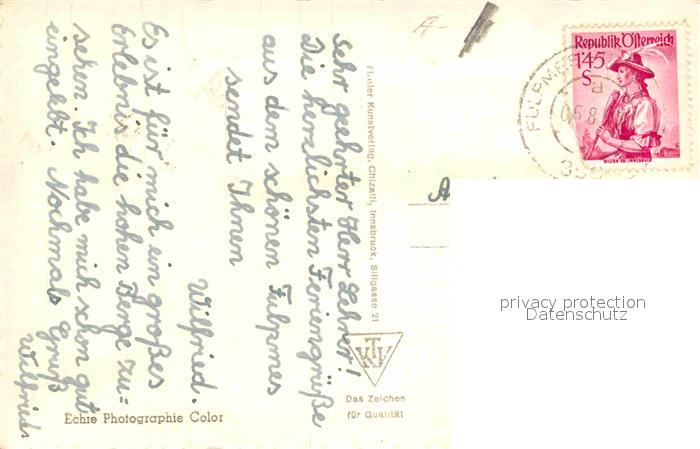 Sehr geehrter Herr Lehrer!
Die herzlichsten Feriengrüße
aus dem schönen Fulpmes
sendet Ihnen
Wilfried.
Es ist für mich ein großes
Erlebnis die hohen Berge zu-
sehen. Ich habe mich schon gut
eingelebt. Nochmals Gruß
Wilfried
Tiroler Kunstverlag, Chizalli, Innsbruck, Sillgasse 21
Das Zeichen
für Qualität
Echte Photographie Color
Republik Österreich
1'45
S
WILTEN BEI INNSBRUCK
FULPMES
a
A
privacy protection
Datenschutz